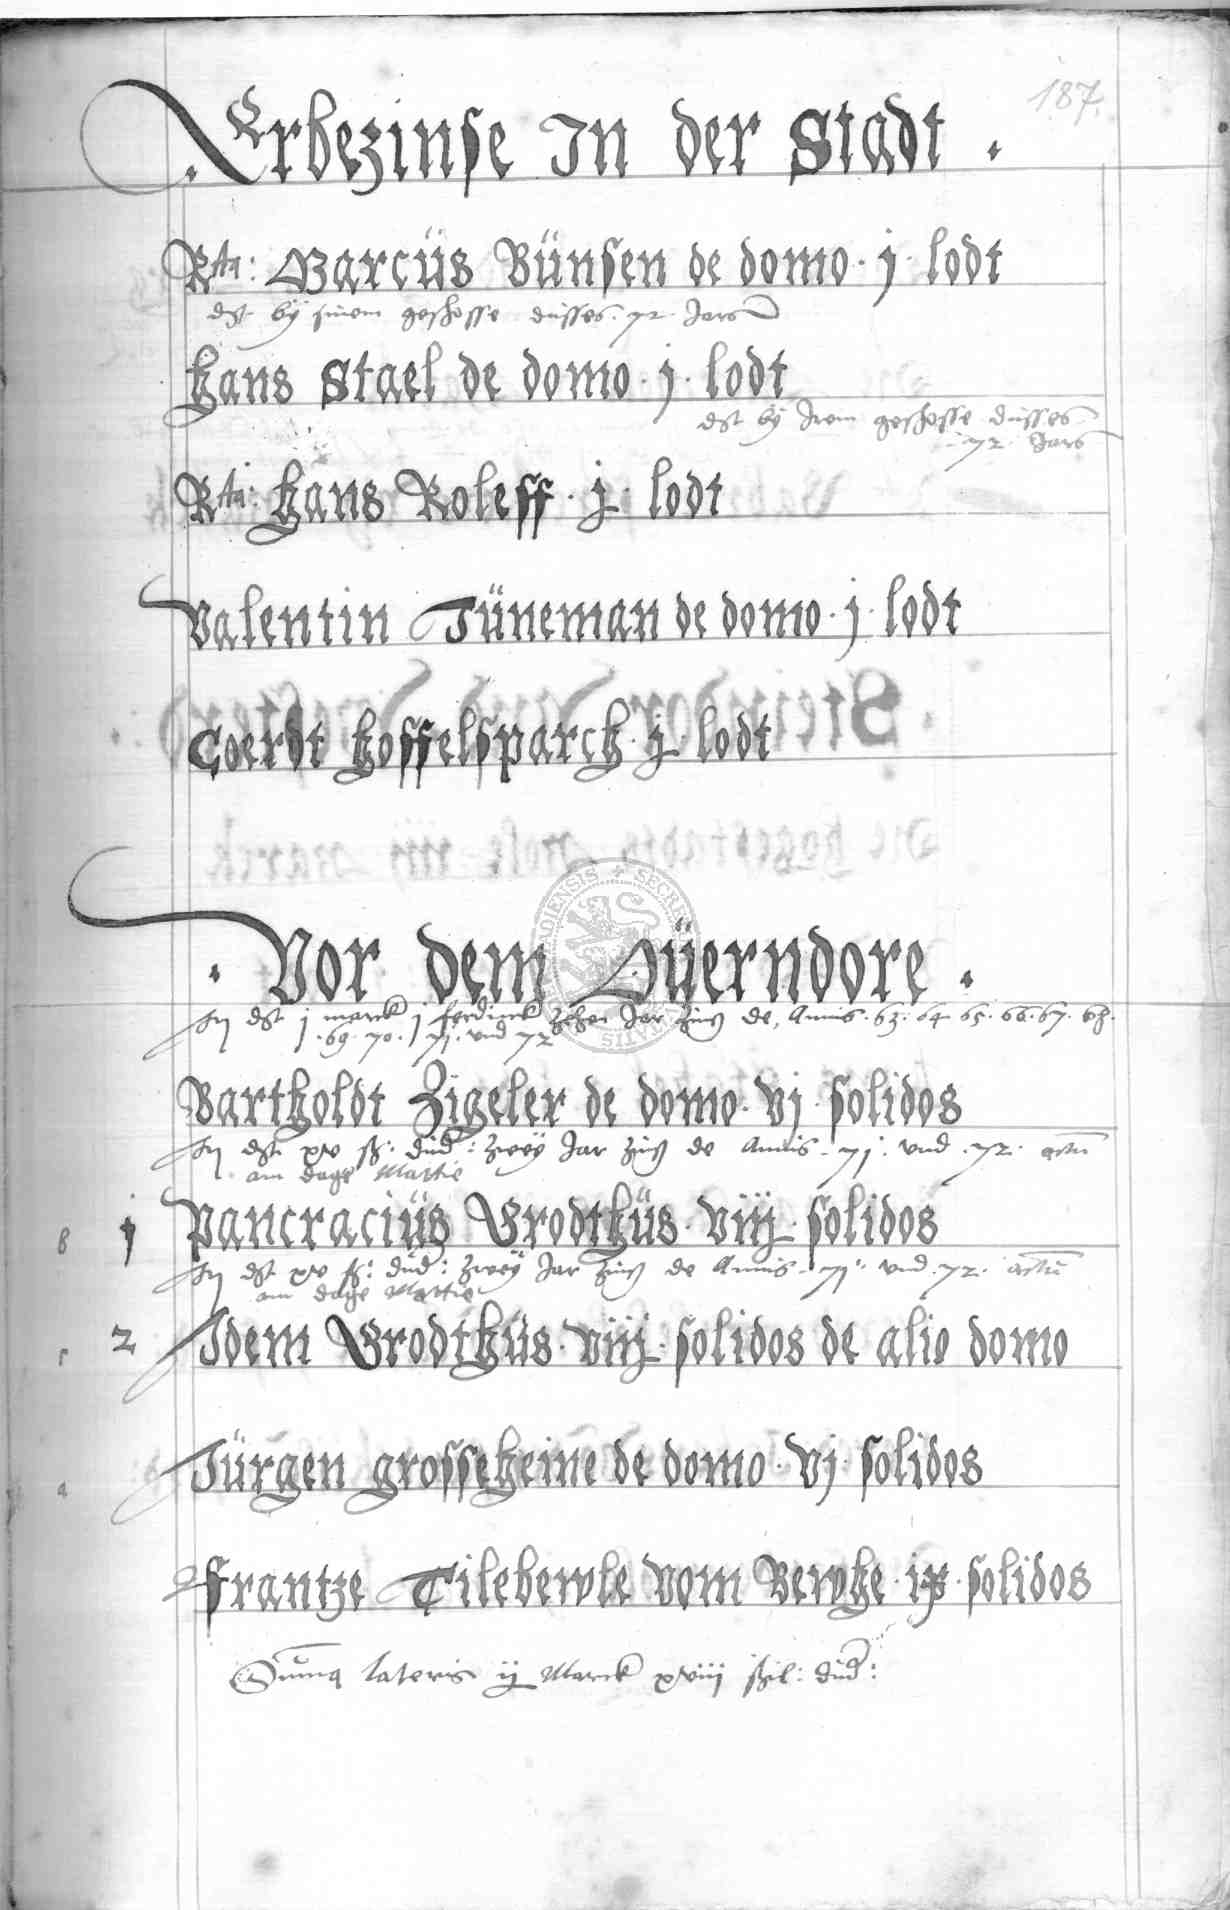 187.
Erbezinse In der Stadt .
Rta: Marcüs Bünsen de domo · j · lodt
dt by sinem geschosse düsses · 72 · Jars
Hans Stael de domo · j · lodt
dt by Irem geschosse düsses
· 72 · Jars
Rta: Hans Roleff · j · lodt
Valentin Tüneman de domo · j · lodt
Coerdt Hoffelsparch · j · lodt
· Vor dem Düerndore ·
dt j marck j ferdinck Jar zins de Annis · 63 · 64 · 65 · 66 · 67 · 68 ·
· 69 · 70 · 71 · und 72
Bartholdt Zigeler de domo · vj · solidos
dt xv ß: düd: zwey Jar zins de Annis · 71 · und · 72 · actu
am dage Martie
j Pancracius Grodthüs · viij · solidos
dt xv ß: düd: zwey Jar zins de Annis · 71 · und · 72 · actu
am dage Martie
2 Idem Grodthüs · viij · solidos de alio domo
Jürgen grosseheine de domo · vj · solidos
Frantze Tilebewle vom Bewhe · ix · solidos
Suma lateris ij Marck xviij ßil: düd: